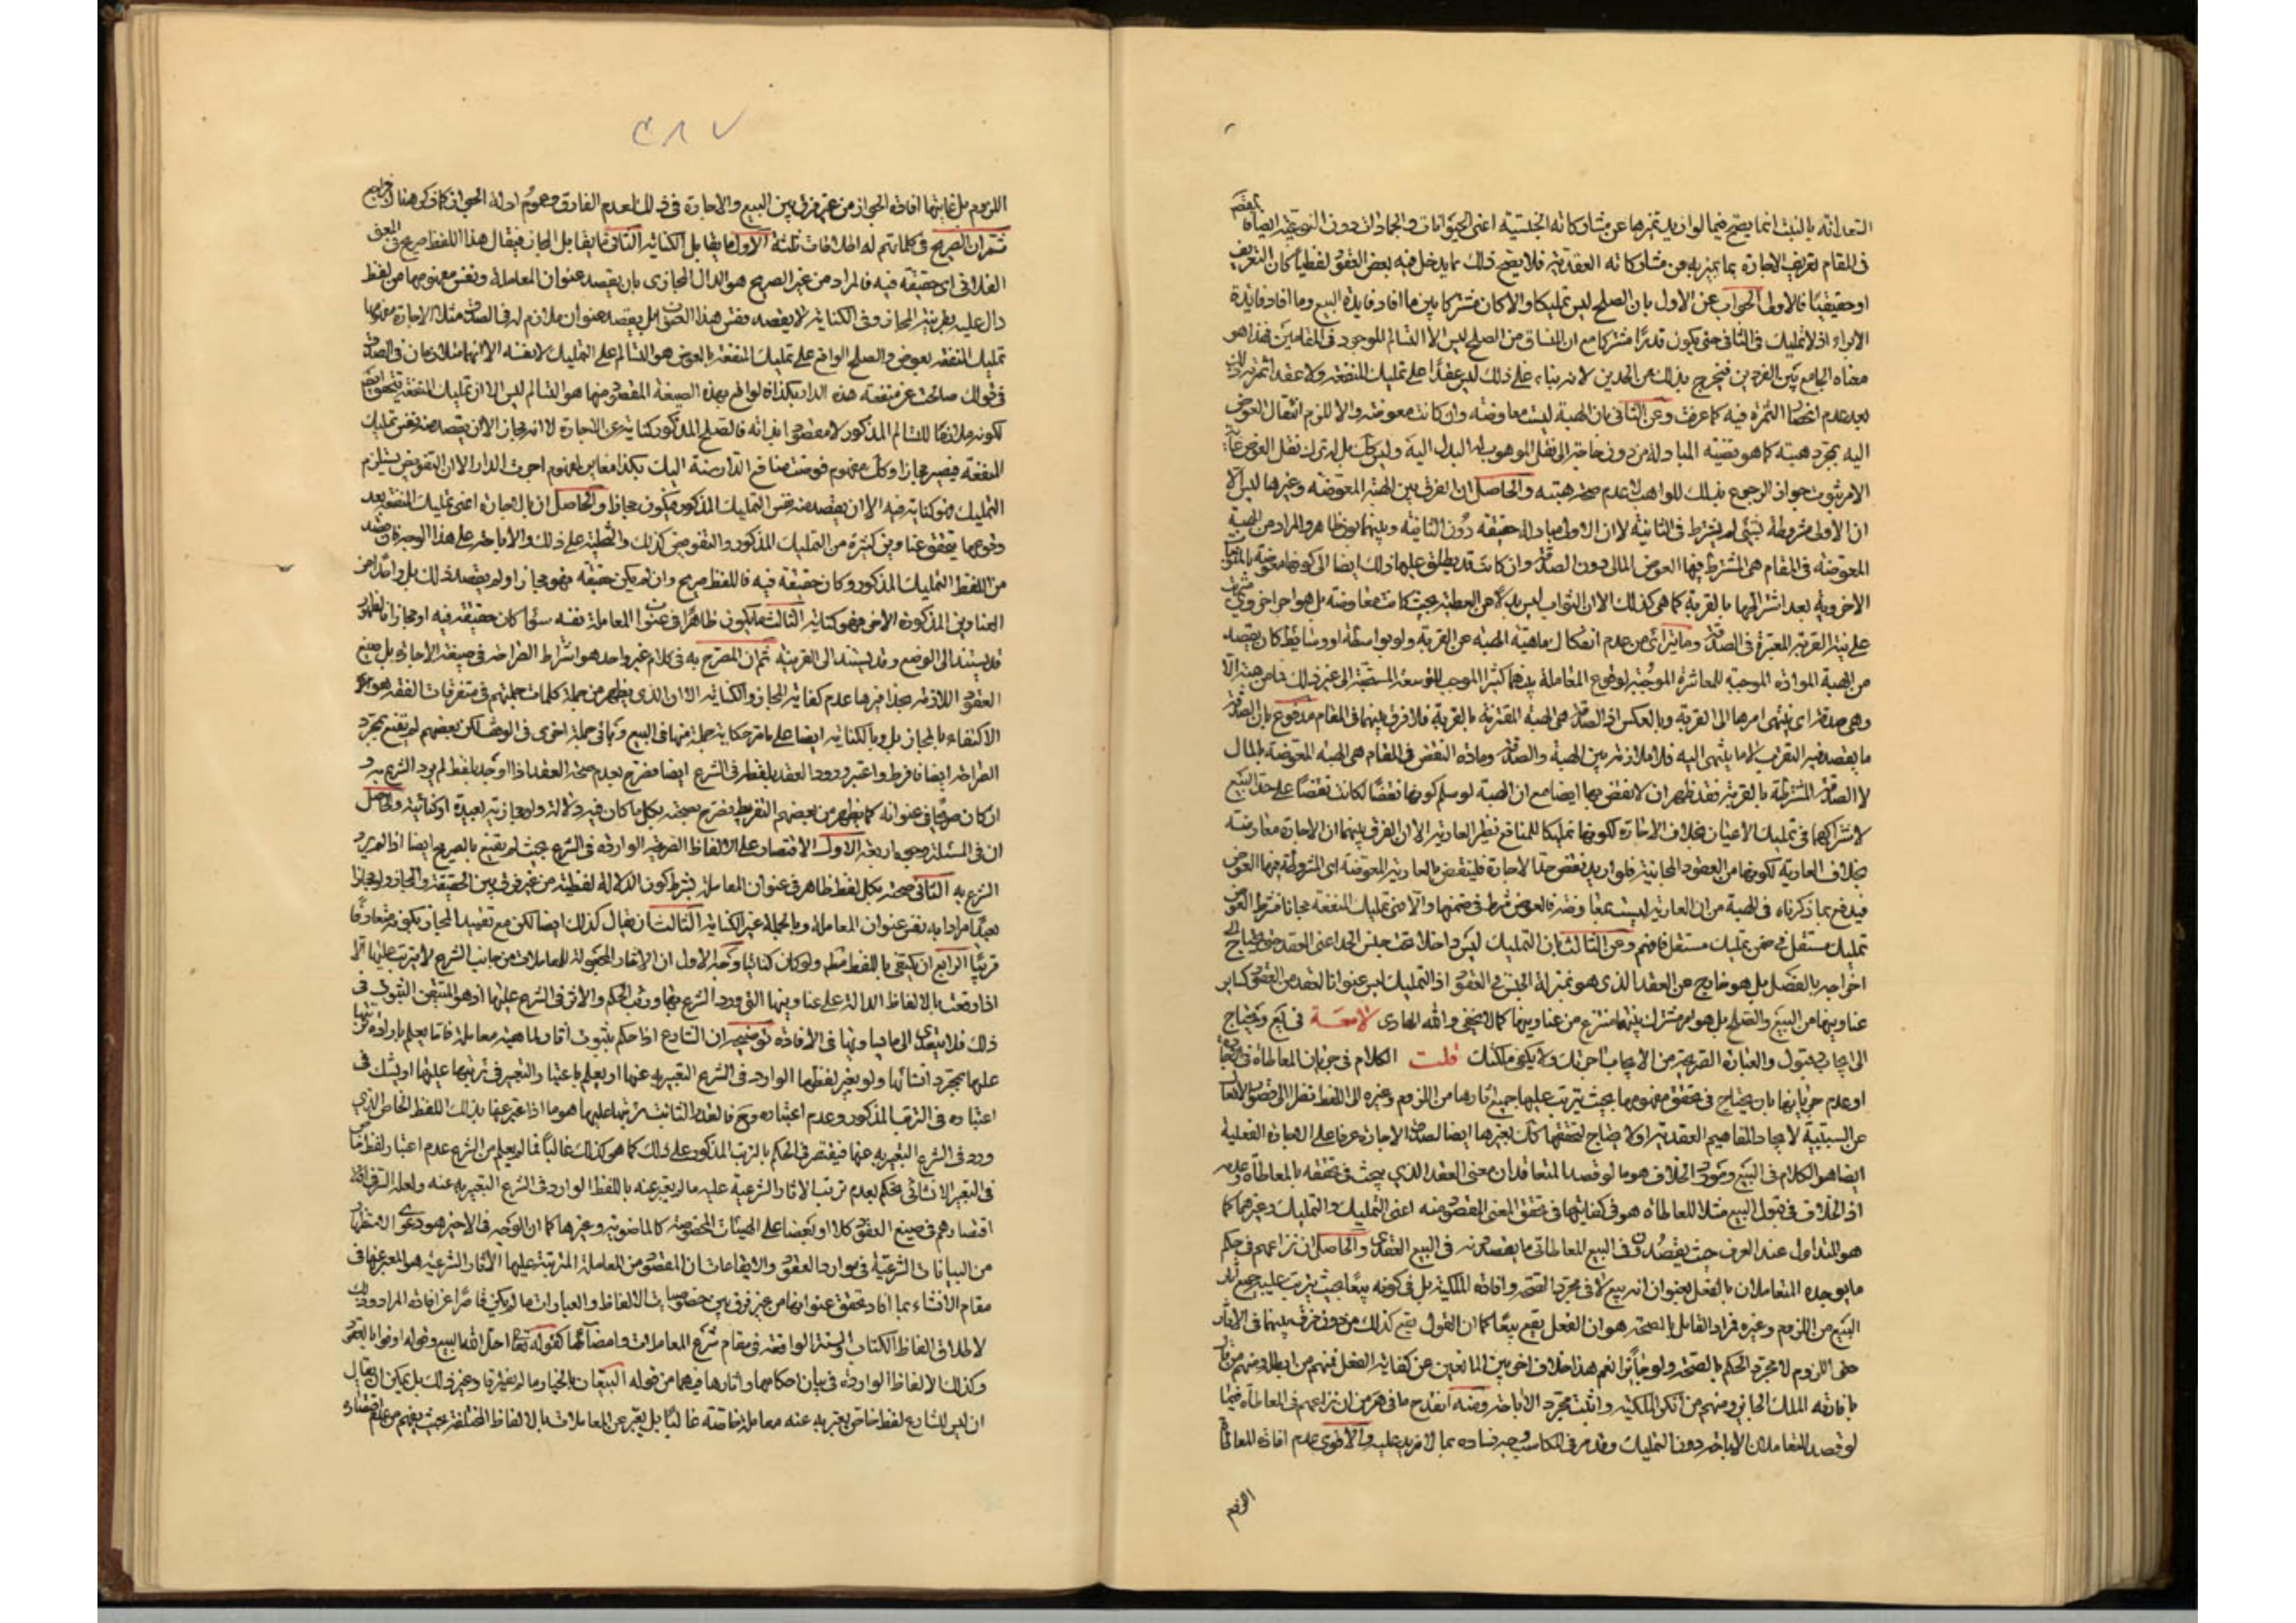 التعد انه بالنبت انما يصح فيما لو اريد تميزها عن مشاركاته الجنسية اعنى الحيوانات والجمادات دون النوعية ايضا
فى المقام تعريف الاجارة بما يميز به عن مشاركاته العقدية فلا يضر ذلك بما يدخل فيه بعض العقود لفظيا كان التعريف
او حقيقيا فالاولى الجواب عن الاول بان الصلح ليس تمليكا والا كان مشتركا بين ما افاد فايدة البيع وما افاد فايدة
الابراء اذ لا تمليك فى الثانى حتى يكون قدرا مشتركا مع ان المنساق من الصلح ليس الا التسالم الموجود فى المقامين فهذا هو
معناه الجامع بين الفردين فيخرج بذلك عن الحدين لانه بناء على ذلك ليس عقدا على تمليك المنفعة ولا عقد
بعد عدم الثمرة فيه كما عرفت وعن الثانى بان الهبة ليست معاوضة وان كانت معوضة والا للزم انتقال العوض
اليه بمجرد هبته كما هو قضية المبادلة من دون حاجة الى نقل الموهوب له البدل اليه وليس كك بل له ترك نقل العوض
الامر ثبوت جواز الرجوع بذلك للواهب لا عدم صحة هبته والحاصل ان الفرق بين الهبة المعوضة وغيرها ليس الا
ان الاولى مشروطة بشئ لم يشترط فى الثانية لا ان الاولى مبادلة حقيقة دون الثانية وبينهما بون ظاهر والمراد من الهبة
المعوضة فى المقام هى المشترط فيها العوض المالى دون الصدقة وان كانت قد يطلق عليها ذلك ايضا
الاخروية بعد اشتراطها بالقربة كما هى كذلك الا ان الثواب ليس بدلا عن العطية بحيث كانت معاوضة بل هو اجر اخروى
على نية القربة المعتبرة فى الصدقة وما يترائى من عدم انفكاك ماهية الهبة عن القربة ولو بواسطة او وسائط كان يقصد
من الهبة الموادة الموجبة للمعاشرة الموجبة لوقوع المعاملة بينهما كثيرا الموجب للتوسعة المستحبة الى غير ذلك
وهى صدقة اى ينتهى امرها الى القربة وبالعكس اذ الصدقة هى الهبة المقترنة بالقربة فلا فرق بينهما فى المقام مدفوع بان الصدقة
ما يقصد فيه التقرب لا ما ينتهى اليه فلا ملازمة بين الهبة والصدقة ومادة النقض فى المقام هى الهبة المعوضة بالمال
لا الصدقة المشترطة بالقربة فقد ظهر ان لا نقض بها ايضا مع ان الهبة لو سلم كونها نقضا لكانت نقضا على حد البيع
لاشتراكهما فى تمليك الاعيان بخلاف الاجارة لكونها تمليكا للمنافع نظير العارية الا ان الفرق بينهما ان الاجارة معاوضة
بخلاف العارية لكونها من العقود المجانية فلو اريد نقض حد الاجارة فلينقض بالعارية المعوضة اى المشروطة فيها العوض
فيدفع بما ذكرناه فى الهبة من ان العارية ليست بمعاوضة فالعوض شرط فى ضمنها والا فهى تمليك المنفعة مجانا
تمليك مستقل فى ضمن تمليك مستقل فافهم وعن الثالث بان التمليك ليس داخلا تحت جنس الحد اعنى العقد حتى يحتاج الى
اخراجه بالفصل بل هو خارج عن العقد الذى هو بمنزلة الجنس فى العقود اذ التمليك ليس عنوانا لعقد من العقود كساير
عناوينها من البيع والصلح بل هو امر مشترك بينهما منتزع من عناوينها كما لا يخفى والله الهادى لامعة فى لمع ويحتاج
الى ايجاب وقبول والعبارة الصريحة من الايجاب اجرتك ولا يكفى ملكتك قلت الكلام فى جريان المعاطاة فى
او عدم جريانها بان يحتاج فى تحقق مفهومها بحيث يترتب عليها جميع آثارها من اللزوم وغيره الى اللفظ نظرا الى قصور الافعال
عن السببية لايجاد المفاهيم العقدية او لا يحتاج لتحققها كك بغيرها ايضا لصدق الاجارة عرفا على العبارة الفعلية
ايضا هو الكلام فى البيع ومورد الخلاف هو ما لو قصد المتعاقدان معنى العقد الذى يبحث فى تحققه بالمعاطاة وعدمه
اذ الخلاف فى قبول البيع مثلا للمعاطاة هو فى كفايتها فى تحقق المعنى المقصود منه اعنى التمليك والتملك وغيرهما كما
هو المتداول عند العرف حيث يقصدون فى البيع المعاطاتى ما يقصدونه فى البيع العقدى والحاصل ان نزاعهم فى حكم
ما يوجده المتعاملان بالفعل بعنوان انه بيع لا فى مجرد الصحة وافادة الملكية بل فى كونه بيعا بحيث يترتب عليه جميع آثار
البيع من اللزوم وغيره فمراد القائل بالصحة هو ان الفعل يقع بيعا كما ان القول يقع كذلك من دون فرق بينهما فى الاثار
حتى اللزوم لا مجرد الحكم بالصحة ولو جايزا نعم هذا خلاف اخر بين المانعين عن كفاية الفعل فمنهم من ابطله ومنهم من
بافادته الملك الجايز ومنهم من انكر الملكية واثبت مجرد الاباحة ومنه انقدح ما فى من ان نزاعهم فى المعاطاة فيما
لو قصد المتعاملان الاباحة دون التمليك وقد مر فى المكاسب وجه فساده بما لا مزيد عليه والاقوى عدم افادة المعاطاة
اللزوم
٢٨٧
اللزوم بل غايتها افادة الجواز من غير فرق بين البيع والاجارة فى ذلك لعدم الفارق وعموم ادلة الجواز كما ذكر هناك
ثم ان الصريح فى كلماتهم له اطلاقات ثلثة الاول ما يقابل الكناية الثانى ما يقابل المجاز فيقال هذا اللفظ صريح فى المعنى
الفلانى اى حقيقة فيه فالمراد من غير الصريح هو الدال المجازى بان يقصد عنوان المعاملة ونفس مفهومها من لفظ
دال عليه بقرينة المجاز وفى الكناية لا يقصد نفس هذا العنوان بل يقصد عنوان ملازم له فى الصدق مثلا الاجارة
تمليك المنفعة بعوض والصلح الواقع على تمليك المنفعة بالعوض هو التسالم على التمليك لا نفسه الا انهما متلازمان فى الصدق
فقولك صالحت عن منفعة هذه الدار بكذا لو اوقع بهذه الصيغة المقصود منها هو التسالم ليس الا ان تمليك المنفعة
لكونه ملازما للتسالم المذكور لا مقصود ابتدائه فالصلح المذكور كناية عن الاجارة لا انه مجاز الا ان يقصد منه نفس تمليك
المنفعة فيصير مجازا وكك مفهوم فوضت منافع الدار منة اليك بكذا مغاير لمفهوم اجرت الدار الا ان التفويض يستلزم
التمليك فهو كناية فيه الا ان يقصد منه نفس التمليك المذكور فيكون مجازا والحاصل ان بالاجارة اعنى تمليك المنفعة بعد
وقوعها يتحقق عناوين كثيرة من التمليك المذكور والتفويض كذلك والتسليط على ذلك والاباحة على هذا الوجه
من اللفظ التمليك المذكور وكان حقيقة فيه فاللفظ صريح وان لم يكن حقيقة فهو مجاز او لم يقصد ذلك بل واحد من
العناوين المذكورة الاخر فهو كناية الثالث ما يكون ظاهرا فى عنوان المعاملة نفسه سواء كان حقيقة فيه او مجازا
قد يستند الى الوضع وقد يستند الى القرينة ثم ان المصرح به فى كلام غير واحد هو اشتراط الصراحة فى صيغة الاجارة بل جميع
العقود اللازمة عدم كفاية المجاز والكناية الا ان الذى يظهر من جملة كلمات جملتهم فى متفرقات الفقه هو
الاكتفاء بالمجاز بل وبالكناية ايضا على ما مر حكاية جملة منها فى البيع وياتى جملة اخرى فى الوقف لكن بعضهم لم يقنع بمجرد
الصراحة ايضا فافرط واعتبر ورود العقد بلفظه فى الشرع ايضا فصرح بعدم صحة العقد اذا اوجد بلفظ لم يرد الشرع به و
ان كان صريحا فى عنوانه كما يظهر من بعضهم التفريط فصرح بصحته بكل ما كان فيه دلالة ولو مجازية بعيدة او كنائية والحاصل
ان فى المسئلة وجوه اربعة الاول الاقتصار على الالفاظ الصريحة الواردة فى الشرع بحيث لم يقنع بالصريح ايضا اذا لم يرد
الشرع به الثانى صحته بكل لفظ ظاهر فى عنوان المعاملة بشرط كون الدلالة لفظية من غير فرق بين الحقيقة والمجاز ولو مجازا
بعيدا مرادا به نفس عنوان المعاملة وبالجملة غير الكناية الثالث ان يقال كذلك ايضا لكن مع تقييد المجاز بكونه متعارفا
قريبا الرابع ان يكتفى باللفظ مطلقا ولو كان كنائيا وجه الاول ان الاثار المجعولة للمعاملات من جانب الشرع لا يترتب عليها الا
اذا وقعت بالالفاظ الدالة على عناوينها التى ورد الشرع بها ورتب الحكم والاثر فى الشرع عليها اذ هو المتيقن الثبوت فى
ذلك فلا يتعدى الى ما يساويها فى الافادة توضيحه ان الشارع اذا حكم بثبوت آثار لماهية معاملة فاما يعلم بارادة ترتبها
عليها بمجرد انشائها ولو بغير لفظها الوارد فى الشرع التعبير به عنها او يعلم باعتبار التعبير فى ترتبها عليها او يشك فى
اعتباره فى الترتب المذكور وعدم اعتباره ومع فالقدر الثابت ترتبها عليها هو ما اذا عبر عنها بذلك اللفظ الخاص الذى
ورد فى الشرع التعبير به عنها فيقتصر فى الحكم بالترتب المذكور على ذلك كما هو كذلك غالبا فما لم يعلم من الشرع عدم اعتبار لفظ خاص
فى التعبير الانشائى يحكم بعدم ترتب الاثار الشرعية عليه ما لم يعبر عنه باللفظ الوارد فى الشرع التعبير به عنه ولعله السر فى
اقتصارهم فى صيغ العقود كلا او بعضا على الهيئات المخصوصة كالماضوية وغيرها كما ان الوجه فى الاخير هو دعوى استظهار
من البيانات الشرعية فى موارد العقود والايقاعات ان المقصود من المعاملة المترتبة عليها الاثار الشرعية هو المعبر عنها فى
مقام الانشاء بما افاد تحقق عنوانها من غير فرق بين خصوصيات الالفاظ والعبارات ما لم يكن قاصرا عن افادة المراد وذلك
لاطلاق الفاظ الكتاب والسنة الواقعة فى مقام شرع المعاملات وامضائها كقوله تعالى احل الله البيع وقوله اوفوا بالعقود
وكذلك الالفاظ الواردة فى بيان احكامها وآثارها فيهما من قوله البيعان بالخيار ما لم يفترقا وغير ذلك بل يمكن ان يقال
ان ليس للشارع لفظ خاص يعبر به عنه معاملة خاصة غالبا بل يعبر عن المعاملات بالالفاظ المختلفة بحيث يفهم من